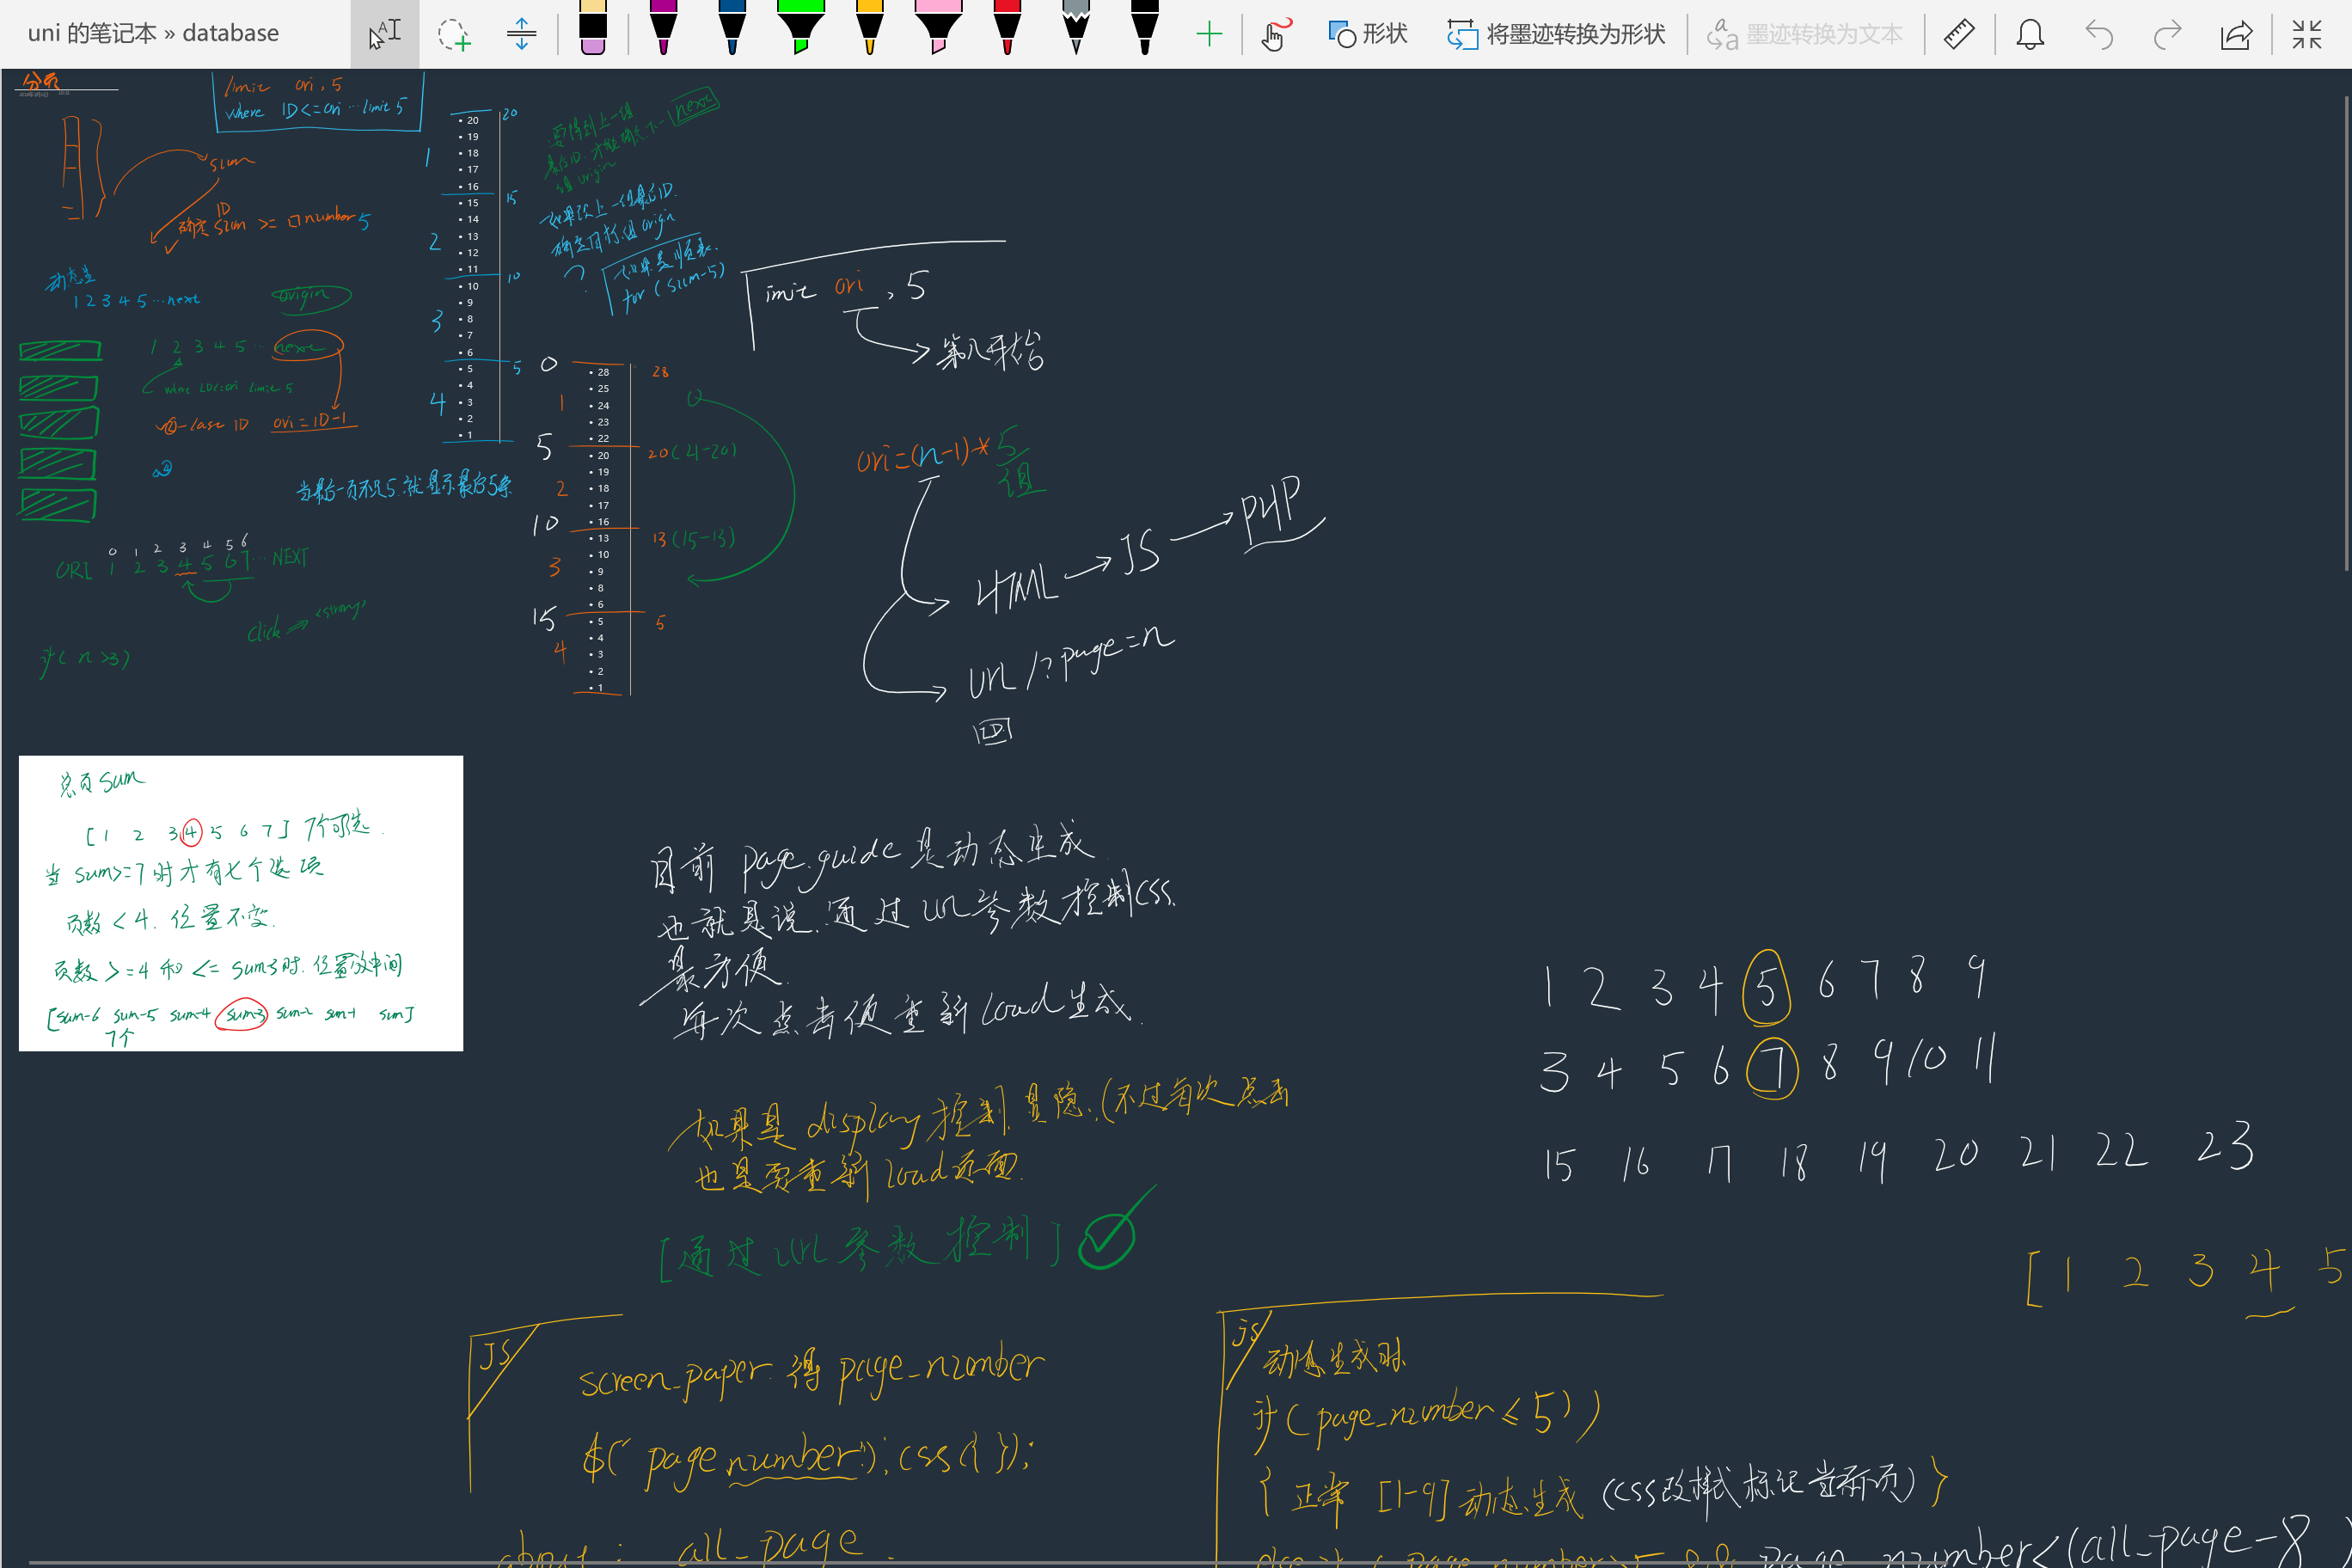 uni 的笔记本 » database
形状
将墨迹转换为形状
墨迹转换为文本
分页
limit ori, 5
where ID<=ori ... limit 5
sum
ID
确定 sum >= 口number 5
动态生
1 2 3 4 5 ...next
origin
1 2 3 4 5 ... next
where ID<=ori limit 5
last ID ori = ID-1
当最后一页不足5.就显示最后5条
0 1 2 3 4 5 6
ORI 1 2 3 4 5 6 7 ... NEXT
click ⇒ <strong>
if( n >3)
20
19
18
17
16
15
14
13
12
11
10
9
8
7
6
5
4
3
2
1
1
2
3
4
20
15
10
5
要得到上一组
最后ID.才能确定下一
组 origin
next
如果没上一组最后ID.
确定目标组 origin
?
如果是顺表.
for ( sum-5)
limit ori , 5
第几开始
0
5
10
15
1
2
3
4
28
25
24
23
22
20
19
18
17
16
13
10
9
8
6
5
4
3
2
1
28
20 (21-20)
13 (15-13)
5
ori=(n-1)* 5/组
HTML → JS → PHP
url /?page=n
总页sum
[ 1 2 3 4 5 6 7 ] 7个可选.
当 sum>=7时才有七个选项
页数 < 4. 位置不变.
页数 >=4 和 <= sum-3时. 位置放中间
[sum-6 sum-5 sum-4 sum-3 sum-2 sum-1 sum]
7个
目前 page.guide 是动态生成
也就是说.通过 url参数控制css.
最方便.
每次点击便重新load生成.
如果是 display 控制显隐.(不过每次点击
也是要重新load页面.
[通过 url 参数控制]
1 2 3 4 5 6 7 8 9
3 4 5 6 7 8 9 10 11
15 16 17 18 19 20 21 22 23
[ 1 2 3 4 5
JS
screen_paper. 得 page_number
$(' page number').css({ });
about : all_page.
js
动态生成时.
if( page_number ≤ 5))
{ 正常 [1-9]动态生成 (css改样式标记当前页) }
else if ( page_number>5 && page_number<(all_page-8)